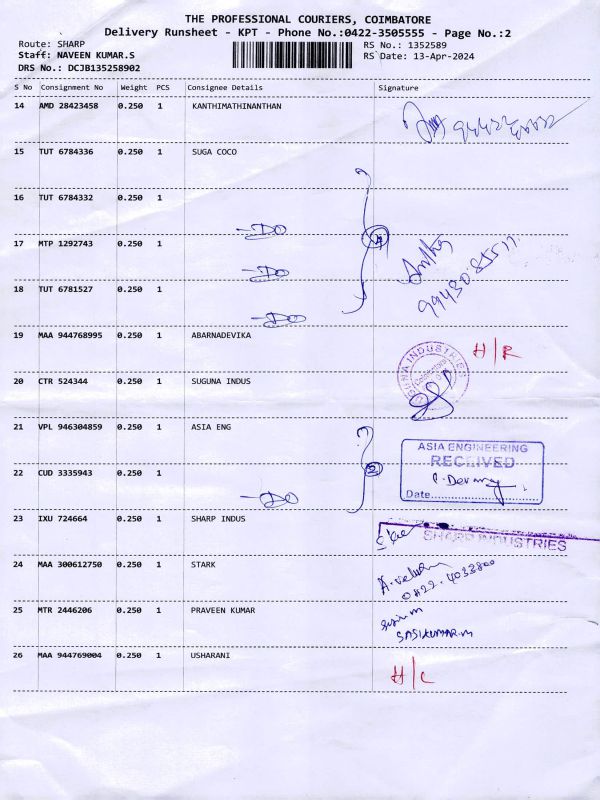 THE PROFESSIONAL COURIERS, COIMBATORE
Delivery Runsheet - KPT - Phone No.:0422-3505555 - Page No.:2
Route: SHARP
RS No.: 1352589
Staff: NAVEEN KUMAR.S
RS Date: 13-Apr-2024
DRS No.: DCJB135258902
S No Consignment No Weight PCS Consignee Details Signature
14 AMD 28423458 0.250 1 KANTHIMATHINANTHAN
15 TUT 6784336 0.250 1 SUGA COCO
16 TUT 6784332 0.250 1
-DO
17 MTP 1292743 0.250 1
4
-DO
18 TUT 6781527 0.250 1
-DO
19 MAA 944768995 0.250 1 ABARNADEVIKA
H/R
20 CTR 524344 0.250 1 SUGUNA INDUS
INDUSTRIES
21 VPL 946304859 0.250 1 ASIA ENG
ASIA ENGINEERING
RECEIVED
Date
22 CUD 3335943 0.250 1
2
-DO
23 IXU 724664 0.250 1 SHARP INDUS
SHARP INDUSTRIES
24 MAA 300612750 0.250 1 STARK
0422-4033800
25 MTR 2446206 0.250 1 PRAVEEN KUMAR
SASIKUMAR.M
26 MAA 944769004 0.250 1 USHARANI
H/C